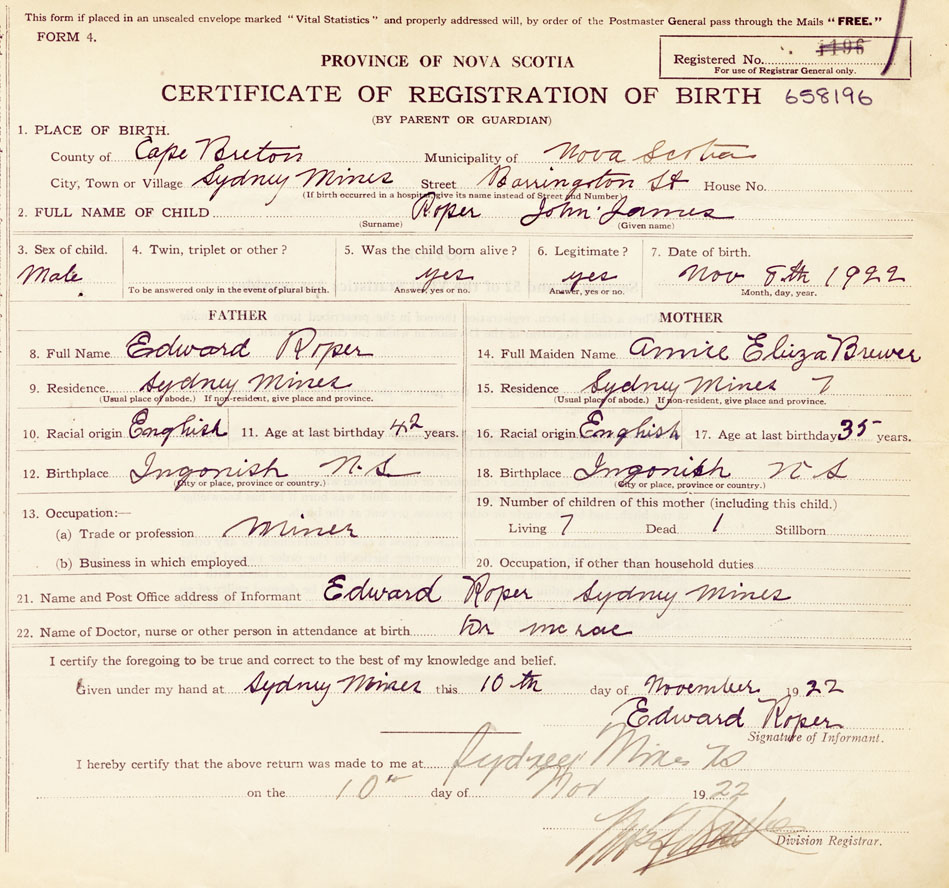 This form if placed in an unsealed envelope marked "Vital Statistics" and properly addressed will, by order of the Postmaster General pass through the Mails "FREE."
FORM 4.
Registered No. 1196
For use of Registrar General only.
PROVINCE OF NOVA SCOTIA
CERTIFICATE OF REGISTRATION OF BIRTH 658196
(BY PARENT OR GUARDIAN)
1. PLACE OF BIRTH.
County of Cape Breton Municipality of Nova Scotia
City, Town or Village Sydney Mines Street Barrington St House No.
(If birth occurred in a hospital give its name instead of Street and Number)
2. FULL NAME OF CHILD Roper John James
(Surname) (Given name)
3. Sex of child. 4. Twin, triplet or other? 5. Was the child born alive? 6. Legitimate? 7. Date of birth.
Male yes yes Nov 8th 1922
To be answered only in the event of plural birth. Answer, yes or no. Answer, yes or no. Month, day, year.
FATHER MOTHER
8. Full Name Edward Roper 14. Full Maiden Name Annie Eliza Brewer
9. Residence Sydney Mines 15. Residence Sydney Mines
(Usual place of abode.) If non-resident, give place and province. (Usual place of abode.) If non-resident, give place and province.
10. Racial origin English 11. Age at last birthday 42 years. 16. Racial origin English 17. Age at last birthday 35 years.
12. Birthplace Ingonish N.S 18. Birthplace Ingonish N S
(City or place, province or country.) (City or place, province or country.)
13. Occupation:— 19. Number of children of this mother (including this child.)
(a) Trade or profession Miner Living 7 Dead 1 Stillborn
(b) Business in which employed 20. Occupation, if other than household duties
21. Name and Post Office address of Informant Edward Roper Sydney Mines
22. Name of Doctor, nurse or other person in attendance at birth Dr McRae
I certify the foregoing to be true and correct to the best of my knowledge and belief.
Given under my hand at Sydney Mines this 10th day of November 1922
Edward Roper
Signature of Informant.
I hereby certify that the above return was made to me at Sydney Mines NS
on the 10th day of Nov 1922
Division Registrar.